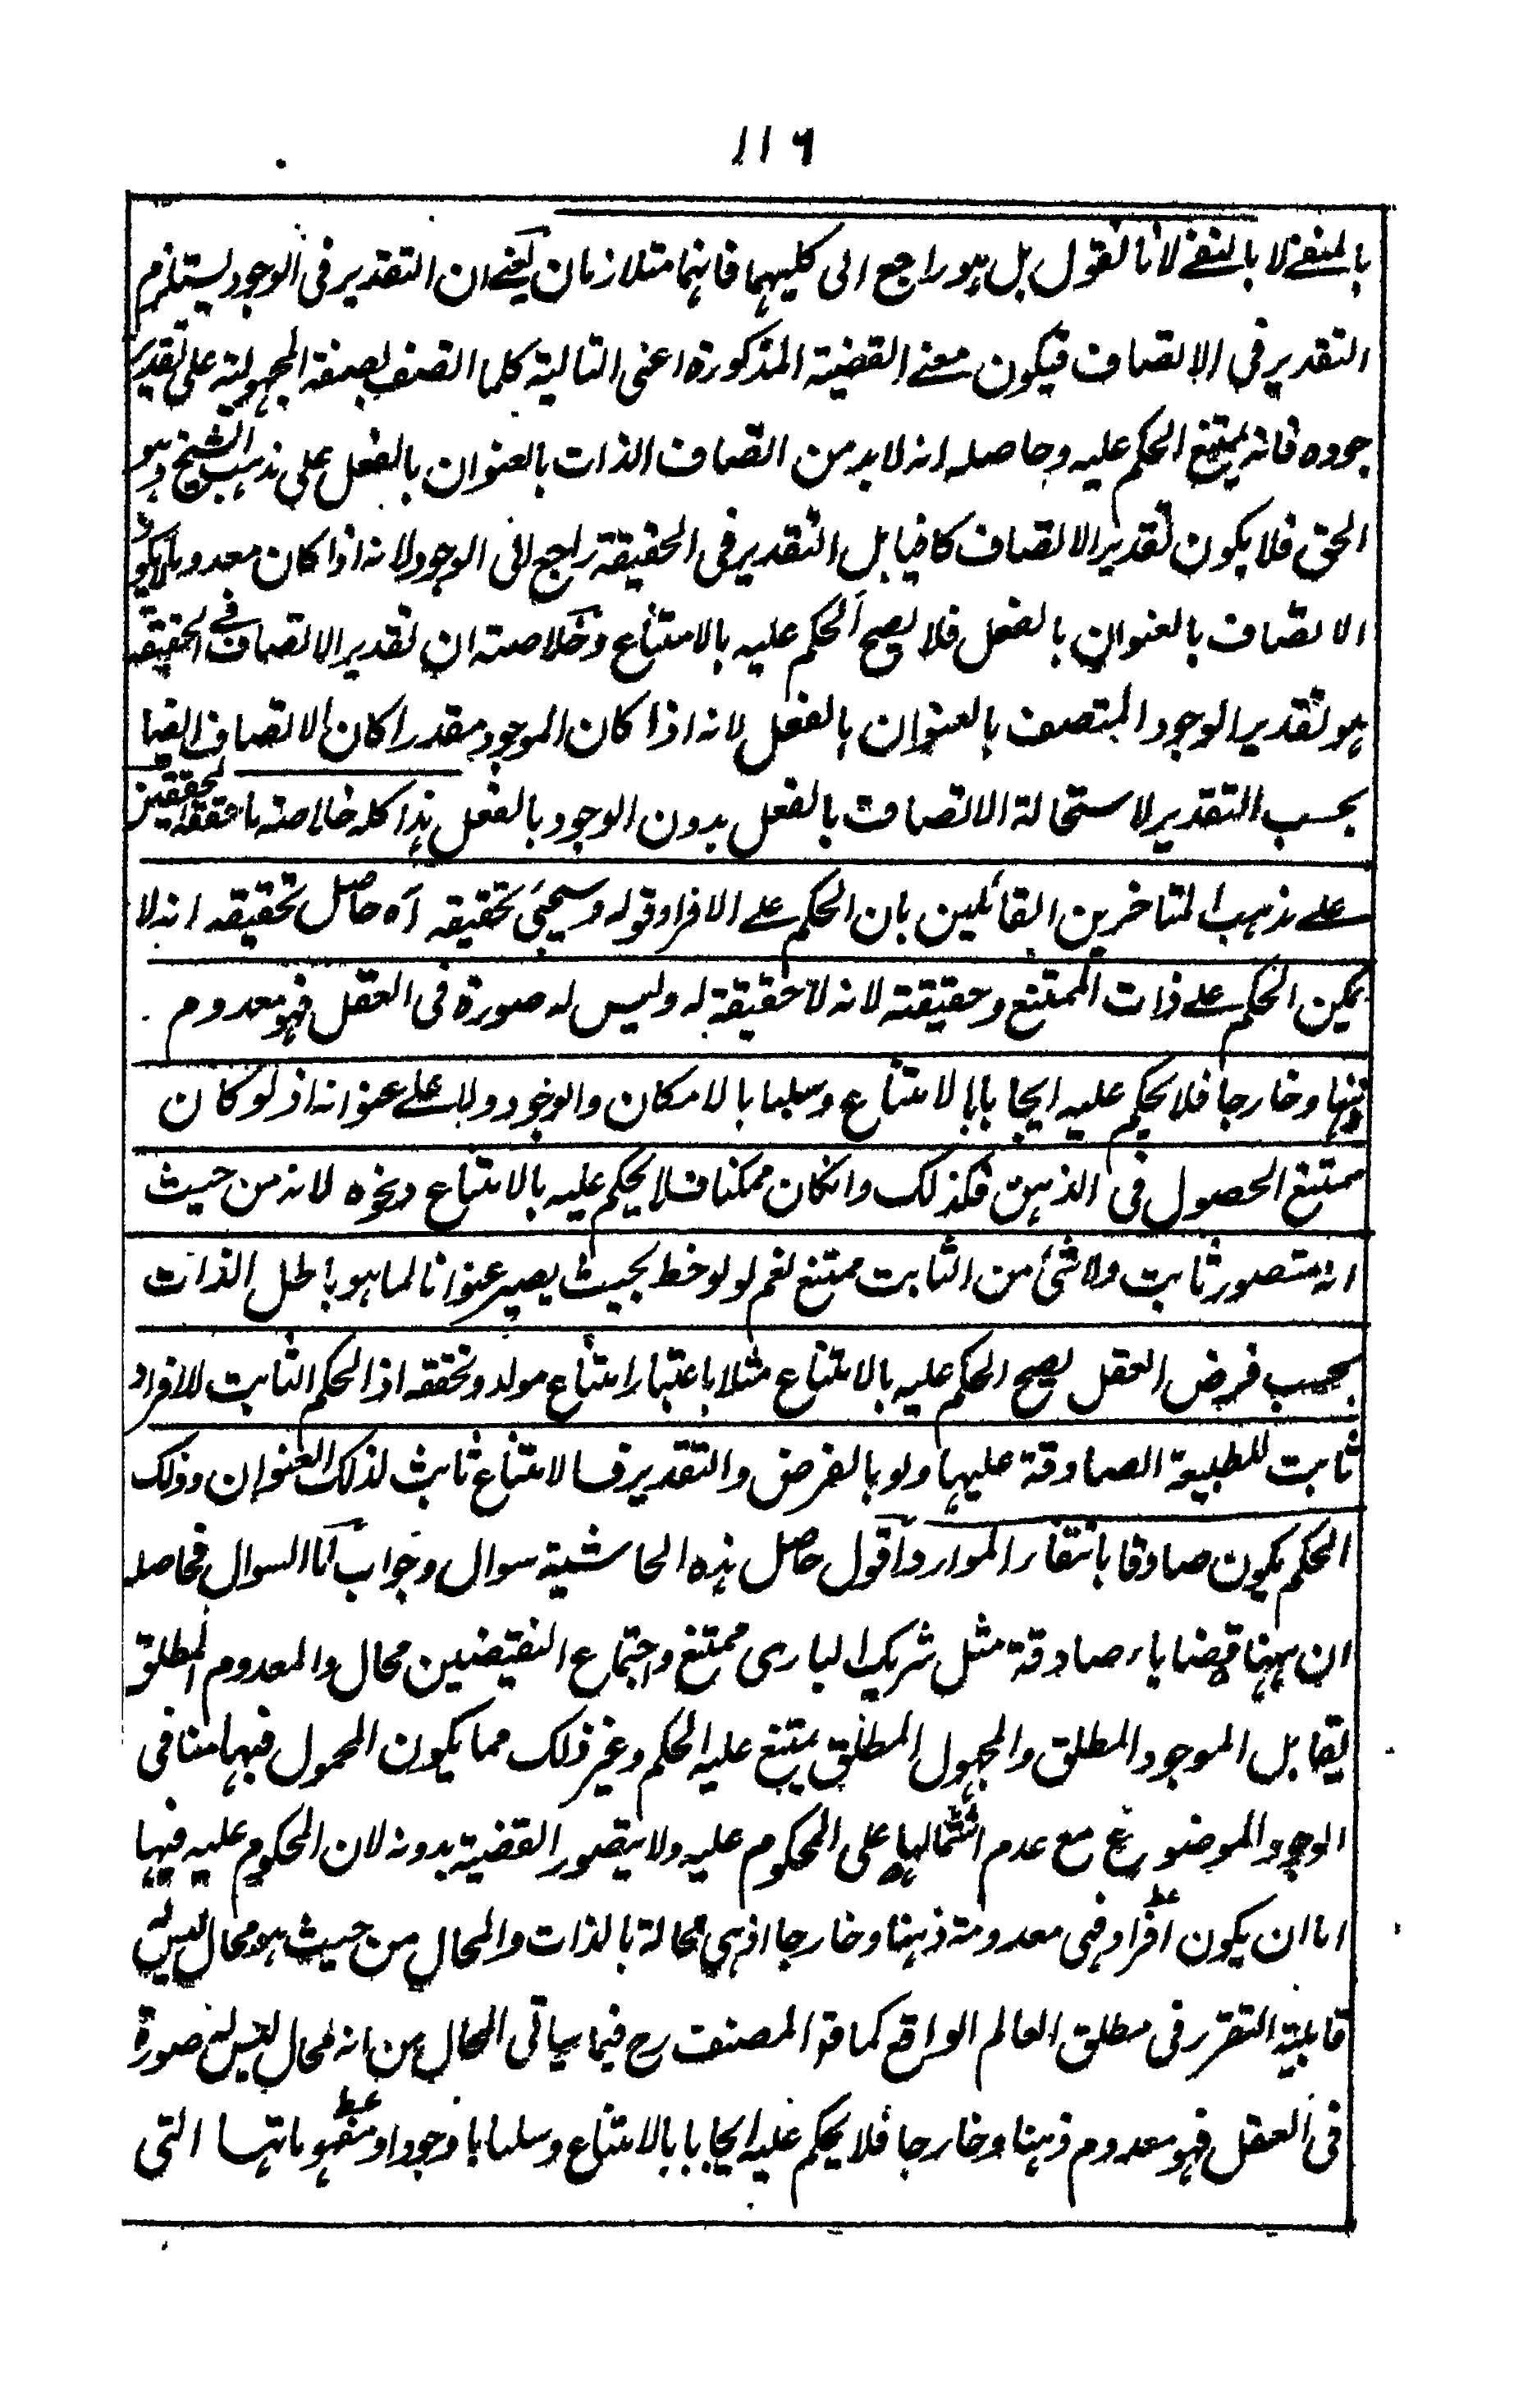 ١١٦
بالمنفے لا بالنفے لانا نقول بل ہو راجع الی کلیہما فانہما متلازمان یعنے ان التقدیر فی الوجود یستلزم
التقدیر فی الاتصاف فیکون معنے القضیة المذکورة اعنی التالیة کلما اتصف بصفة المجہولیة علی تقدیر
جوده فانہ یمتنع الحکم علیہ وحاصلہ انہ لابد من اتصاف الذات بالعنوان بالفعل علی مذہب الشیخ وہو
الحق فلا یکون تقدیر الاتصاف کافیا بل التقدیر فی الحقیقة راجع الی الوجود لانہ اذا کان معدوما لایکون
الاتصاف بالعنوان بالفعل فلا یصح الحکم علیہ بالامتناع وخلاصتہ ان تقدیر الاتصاف فے الحقیقة
ہو تقدیر الوجود المتصف بالعنوان بالفعل لانہ اذا کان الموجود مقدرا کان الاتصاف ایضا
بحسب التقدیر لاستحالة الاتصاف بالفعل بدون الوجود بالفعل ہذا کلہ خلاصة ما حققہ المحققین
علے مذہب المتاخرین القائلین بان الحکم علے الافراد قولہ وسیجئ تحقیقہ آہ حاصل تحقیقہ انہ لا
یمکن الحکم علے ذات الممتنع وحقیقتہ لانہ لا حقیقة لہ ولیس لہ صورة فی العقل فہو معدوم
ذہنا وخارجا فلا یحکم علیہ ایجابا بالامتناع وسلبا بالامکان والوجود ولا علے عنوانہ اذ لو کان
ممتنع الحصول فی الذہن فکذلک وانکان ممکنا فلا یحکم علیہ بالامتناع ونحوہ لانہ من حیث
انہ متصور ثابت ولا شئ من الثابت ممتنع نعم لو لوحظ بحیث یصیر عنوانا لما ہو باطل الذات
بحسب فرض العقل یصح الحکم علیہ بالامتناع مثلا باعتبار امتناع موارد وتحققہ اذ الحکم الثابت للافراد
ثابت للطبیعة الصادقة علیہا ولو بالفرض والتقدیر فالامتناع ثابت لذلک العنوان وذلک
الحکم یکون صادقا بانتفاء الموارد اقول حاصل ہذہ الحاشیة سوال وجواب اما السوال فحاصلہ
ان ہہنا قضایاء صادقة مثل شریک الباری ممتنع واجتماع النقیضین محال والمعدوم المطلق
یقابل الموجود المطلق والمجہول المطلق یمتنع علیہ الحکم وغیر ذلک مما یکون المحمول فیہا منافی
الوجود الموضوع مع عدم اشتمالہا علی المحکوم علیہ ولا یتصور القضیة بدونہ لان المحکوم علیہ فیہا
اما ان یکون افراد فہی معدومة ذہنا وخارجا اذ ہی محالة بالذات والمحال من حیث ہو محال لیس لہ
قابلیة التقرر فی مطلق العالم الواقع کما قا المصنف رح فیما سیاتی المحال من انہ محال لیس لہ صورة
فی العقل فہو معدوم ذہنا وخارجا فلا یحکم علیہ ایجابا بالامتناع وسلبا بالوجود او مفہوماتہا التی